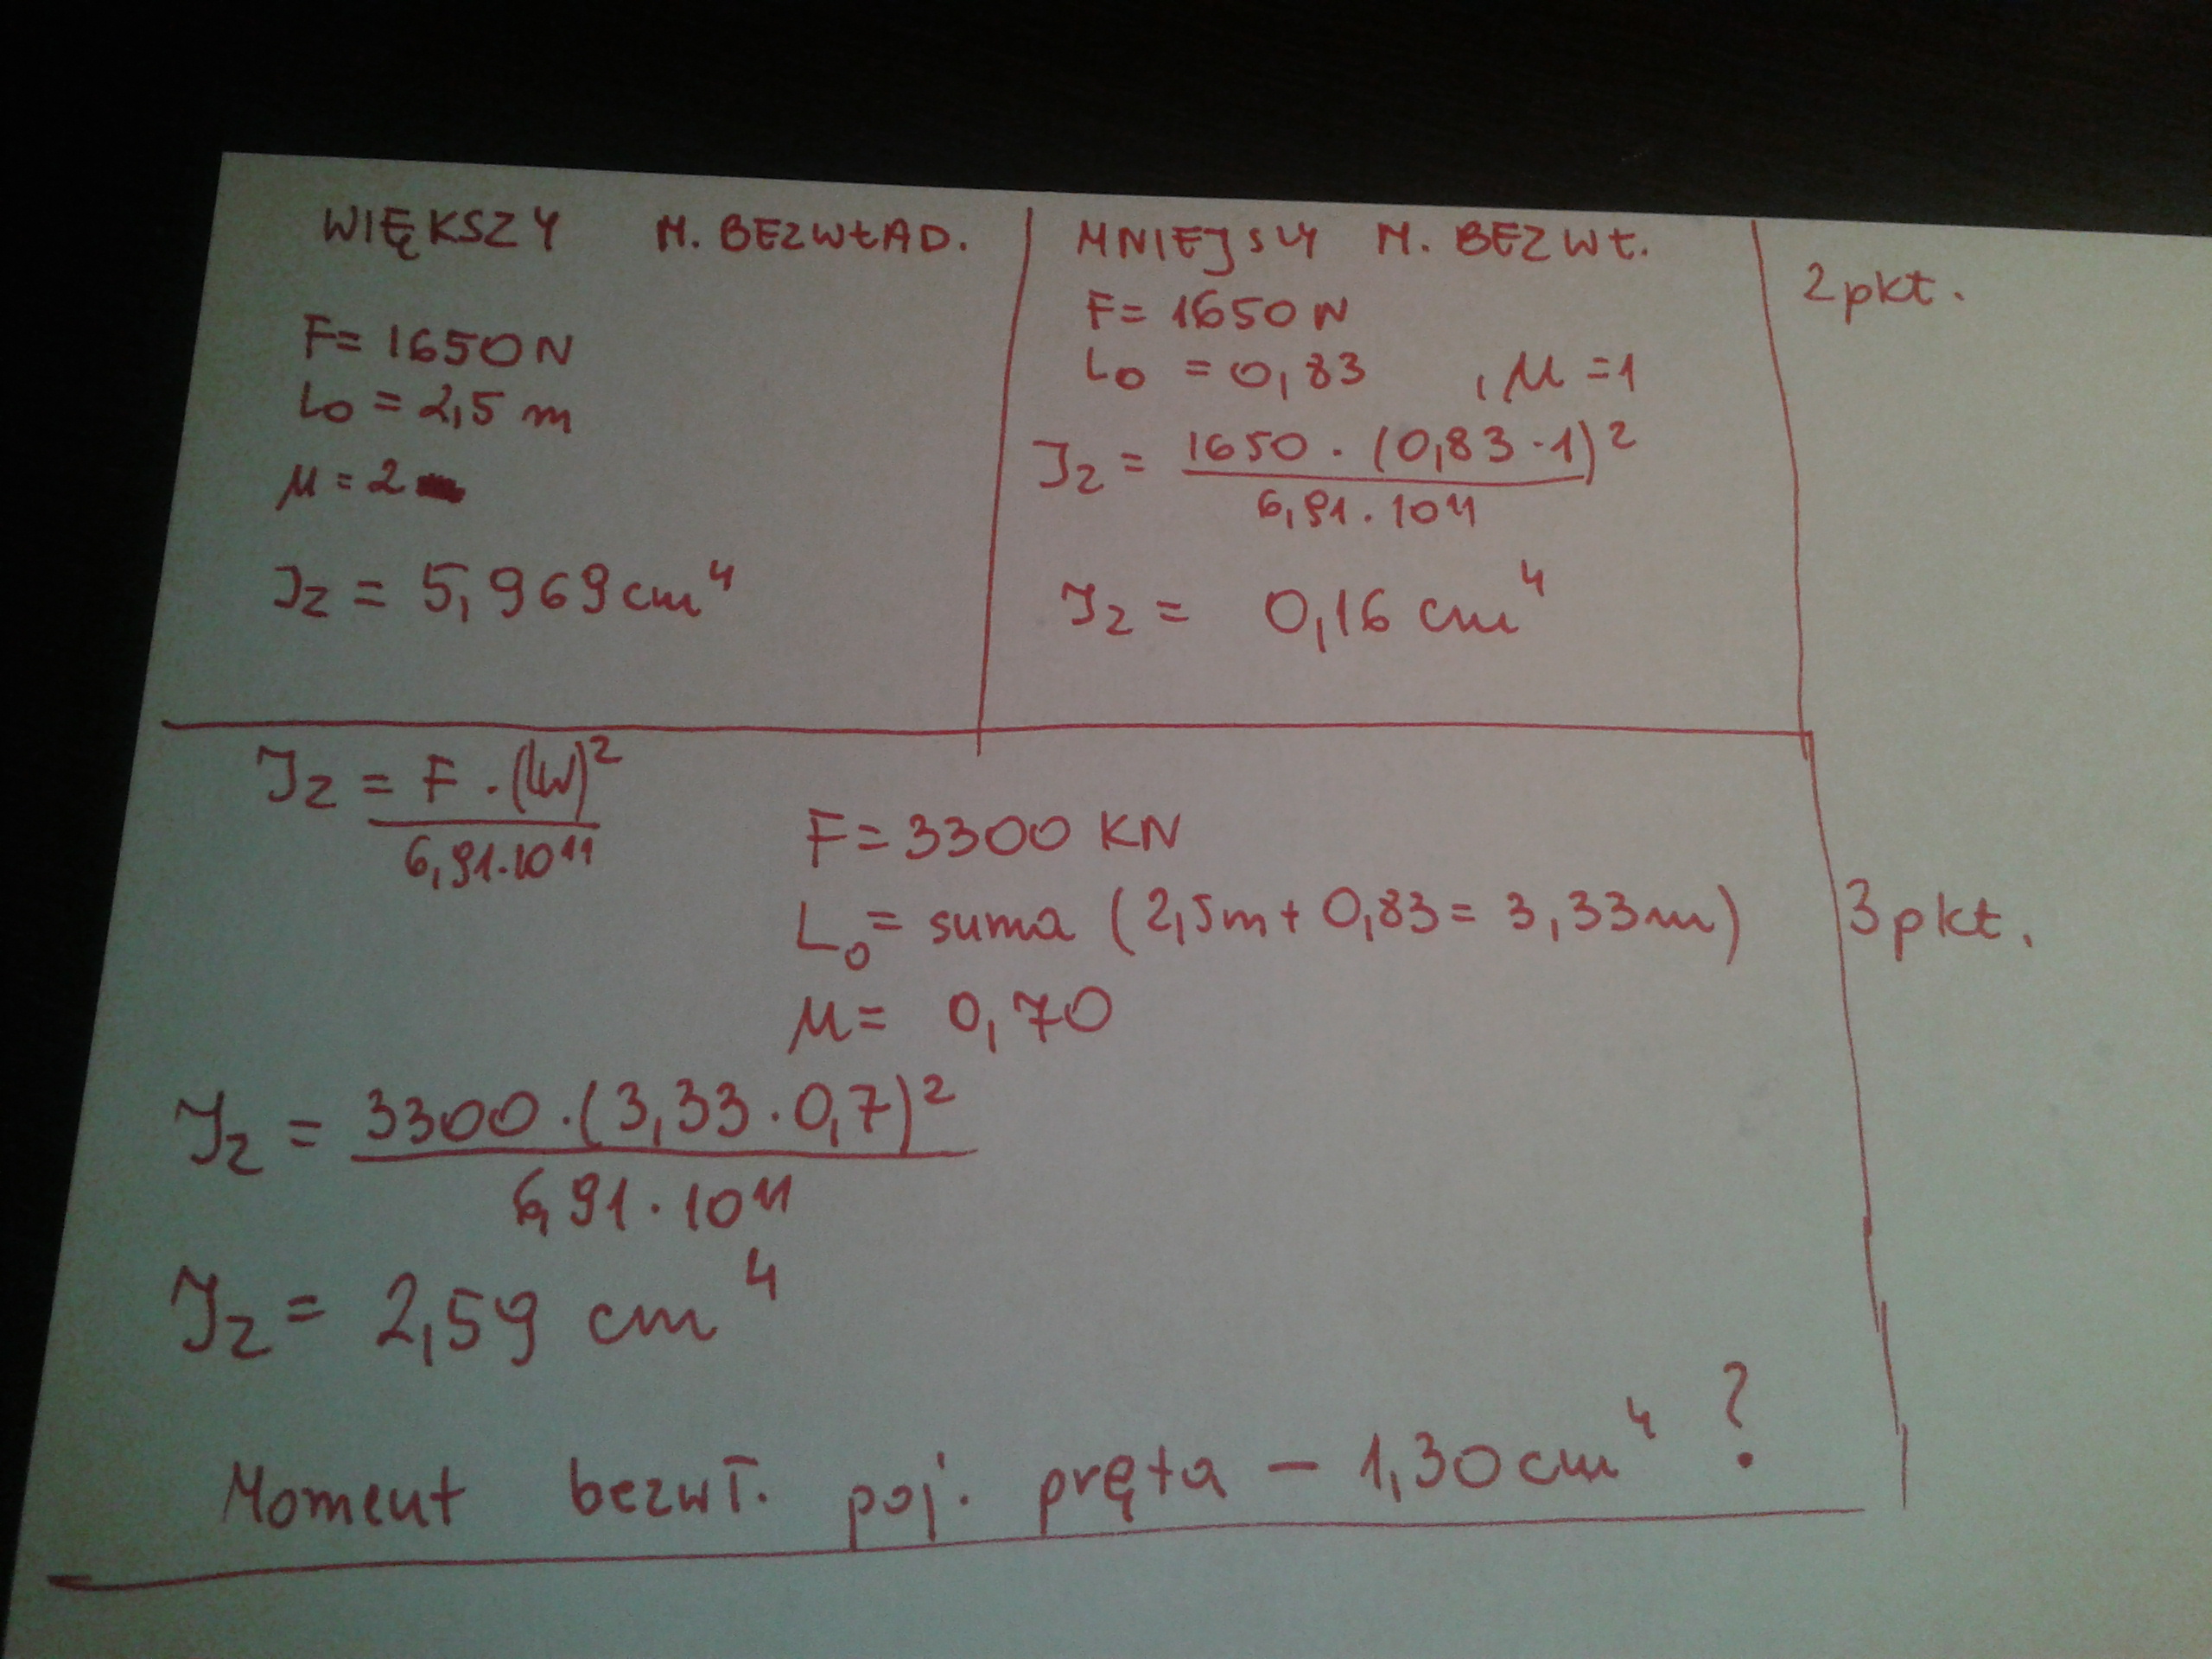 WIĘKSZY M. BEZWŁAD.
F= 1650N
L0 = 2,5 m
μ = 2
Jz = 5,969 cm⁴
MNIEJSZY M. BEZWŁ.
F= 1650N
L0 = 0,83 , μ = 1
Jz = 1650 · (0,83 · 1)²
6,91 · 10¹¹
Jz = 0,16 cm⁴
2 pkt.
Jz = F · (lw)²
6,91 · 10¹¹
F = 3300 KN
L0 = suma (2,5m + 0,83 = 3,33m)
μ = 0,70
3 pkt.
Jz = 3300 · (3,33 · 0,7)²
6,91 · 10¹¹
Jz = 2,59 cm⁴
Moment bezwł. poj. pręta – 1,30 cm⁴ ?